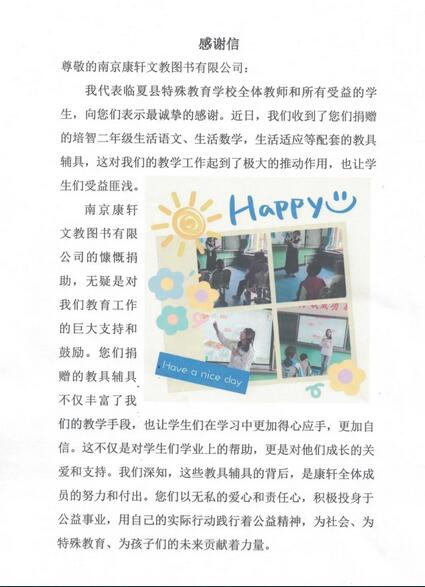 感谢信
尊敬的南京康轩文教图书有限公司：
我代表临夏县特殊教育学校全体教师和所有受益的学
生，向您们表示最诚挚的感谢。近日，我们收到了您们捐赠
的培智二年级生活语文、生活数学，生活适应等配套的教具
辅具，这对我们的教学工作起到了极大的推动作用，也让学
生们受益匪浅。
南京康轩
文教图书有限
公司的慷慨捐
助，无疑是对
我们教育工作
的巨大支持和
鼓励。您们捐
赠的教具辅具
不仅丰富了我
Happy
Have a nice day
们的教学手段，也让学生们在学习中更加得心应手，更加自
信。这不仅是对学生们学业上的帮助，更是对他们成长的关
爱和支持。我们深知，这些教具辅具的背后，是康轩全体成
员的努力和付出。您们以无私的爱心和责任心，积极投身于
公益事业，用自己的实际行动践行着公益精神，为社会、为
特殊教育、为孩子们的未来贡献着力量。